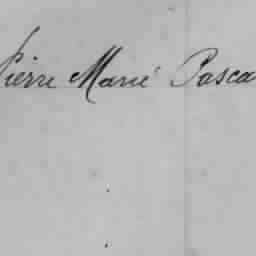 Pierre Marie Pasca